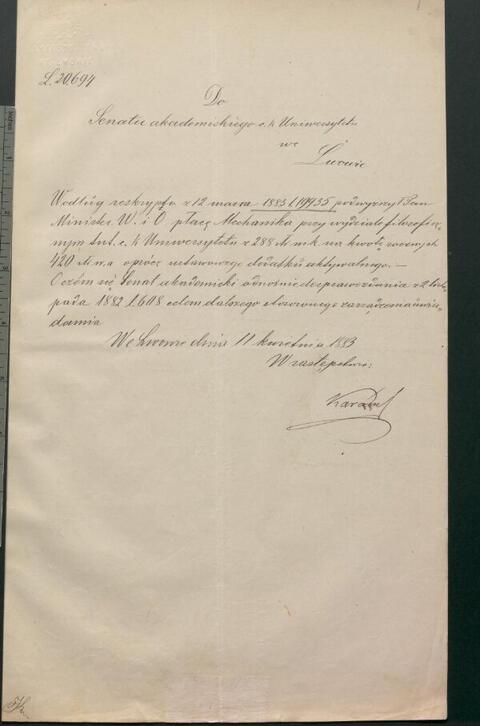 L. 20,694
Do
Senatu akademickiego c. k. Uniwersytetu
we
Lwowie
Według reskryptu z 12 marca 1883 l. 19935 podwyższył Pan
Minister W. i O. płacę Mechanika przy wydziale filozoficz-
nym tut. c. k. Uniwersytetu z 288 na kwotę rocznych
420 w. a oprócz ustawowego dodatku aktywalnego. —
O czem się Senat akademicki odnośnie do sprawozdania z 8 listo-
pada 1882 l. 608 celem dalszego stosownego zarządzenia uwia-
damia
We Lwowie dnia 11 kwietnia 1883
W zastępstwie: